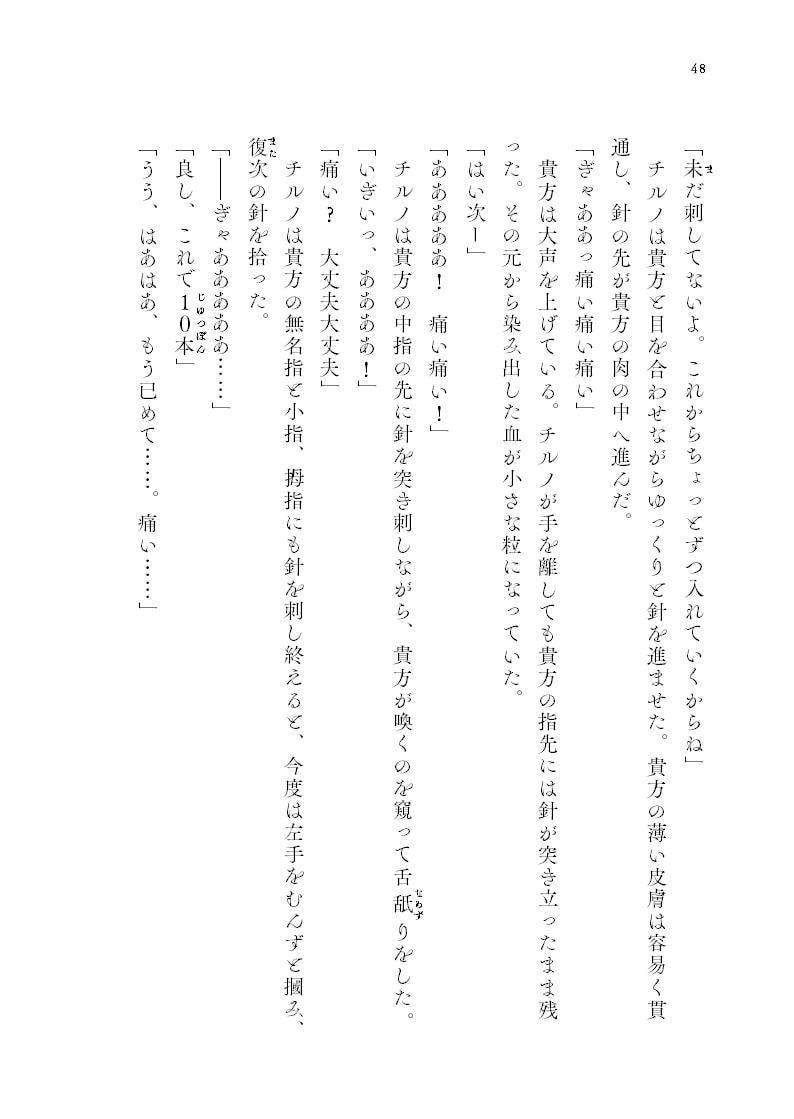 48
「未だ刺してないよ。これからちょっとずつ入れていくからね」
チルノは貴方と目を合わせながらゆっくりと針を進ませた。貴方の薄い皮膚は容易く貫
通し、針の先が貴方の肉の中へ進んだ。
「ぎゃああっ痛い痛い痛い」
貴方は大声を上げている。チルノが手を離しても貴方の指先には針が突き立ったまま残
った。その元から染み出した血が小さな粒になっていた。
「はい次ー」
「あああああ！　痛い痛い！」
チルノは貴方の中指の先に針を突き刺しながら、貴方が喚くのを窺って舌舐りをした。
「いぎいっ、ああああ！」
「痛い？　大丈夫大丈夫」
チルノは貴方の無名指と小指、拇指にも針を刺し終えると、今度は左手をむんずと摑み、
復次の針を拾った。
「――ぎゃあああああ……」
「良し、これで１０本」
「うう、はあはあ、もう已めて……。痛い……」